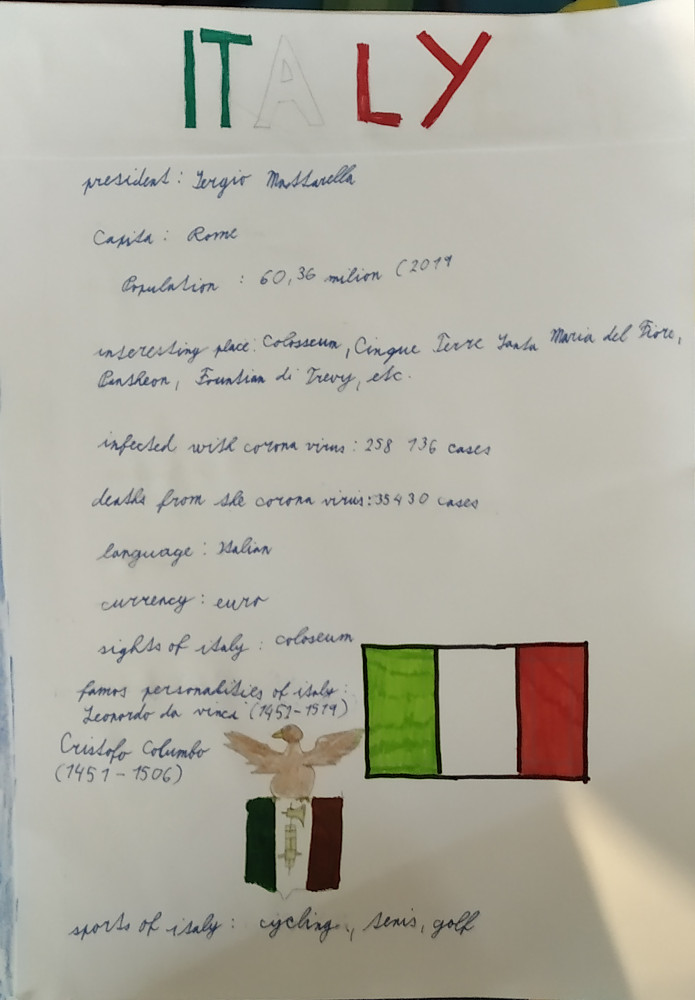 ITALY
president: Sergio Mattarella
Capita: Rome
Population: 60,36 milion (2019
interesting place: Colosseum, Cinque Terre Santa Maria del Fiore,
Pantheon, Fountian di Trevy, etc.
infected with corona virus: 258 136 cases
deaths from the corona virus: 35430 cases
language: Italian
currency: euro
sights of italy: coloseum
famos personalities of italy:
Leonardo da vinci (1452-1519)
Cristofo Columbo
(1451-1506)
sports of italy: cycling, tenis, golf